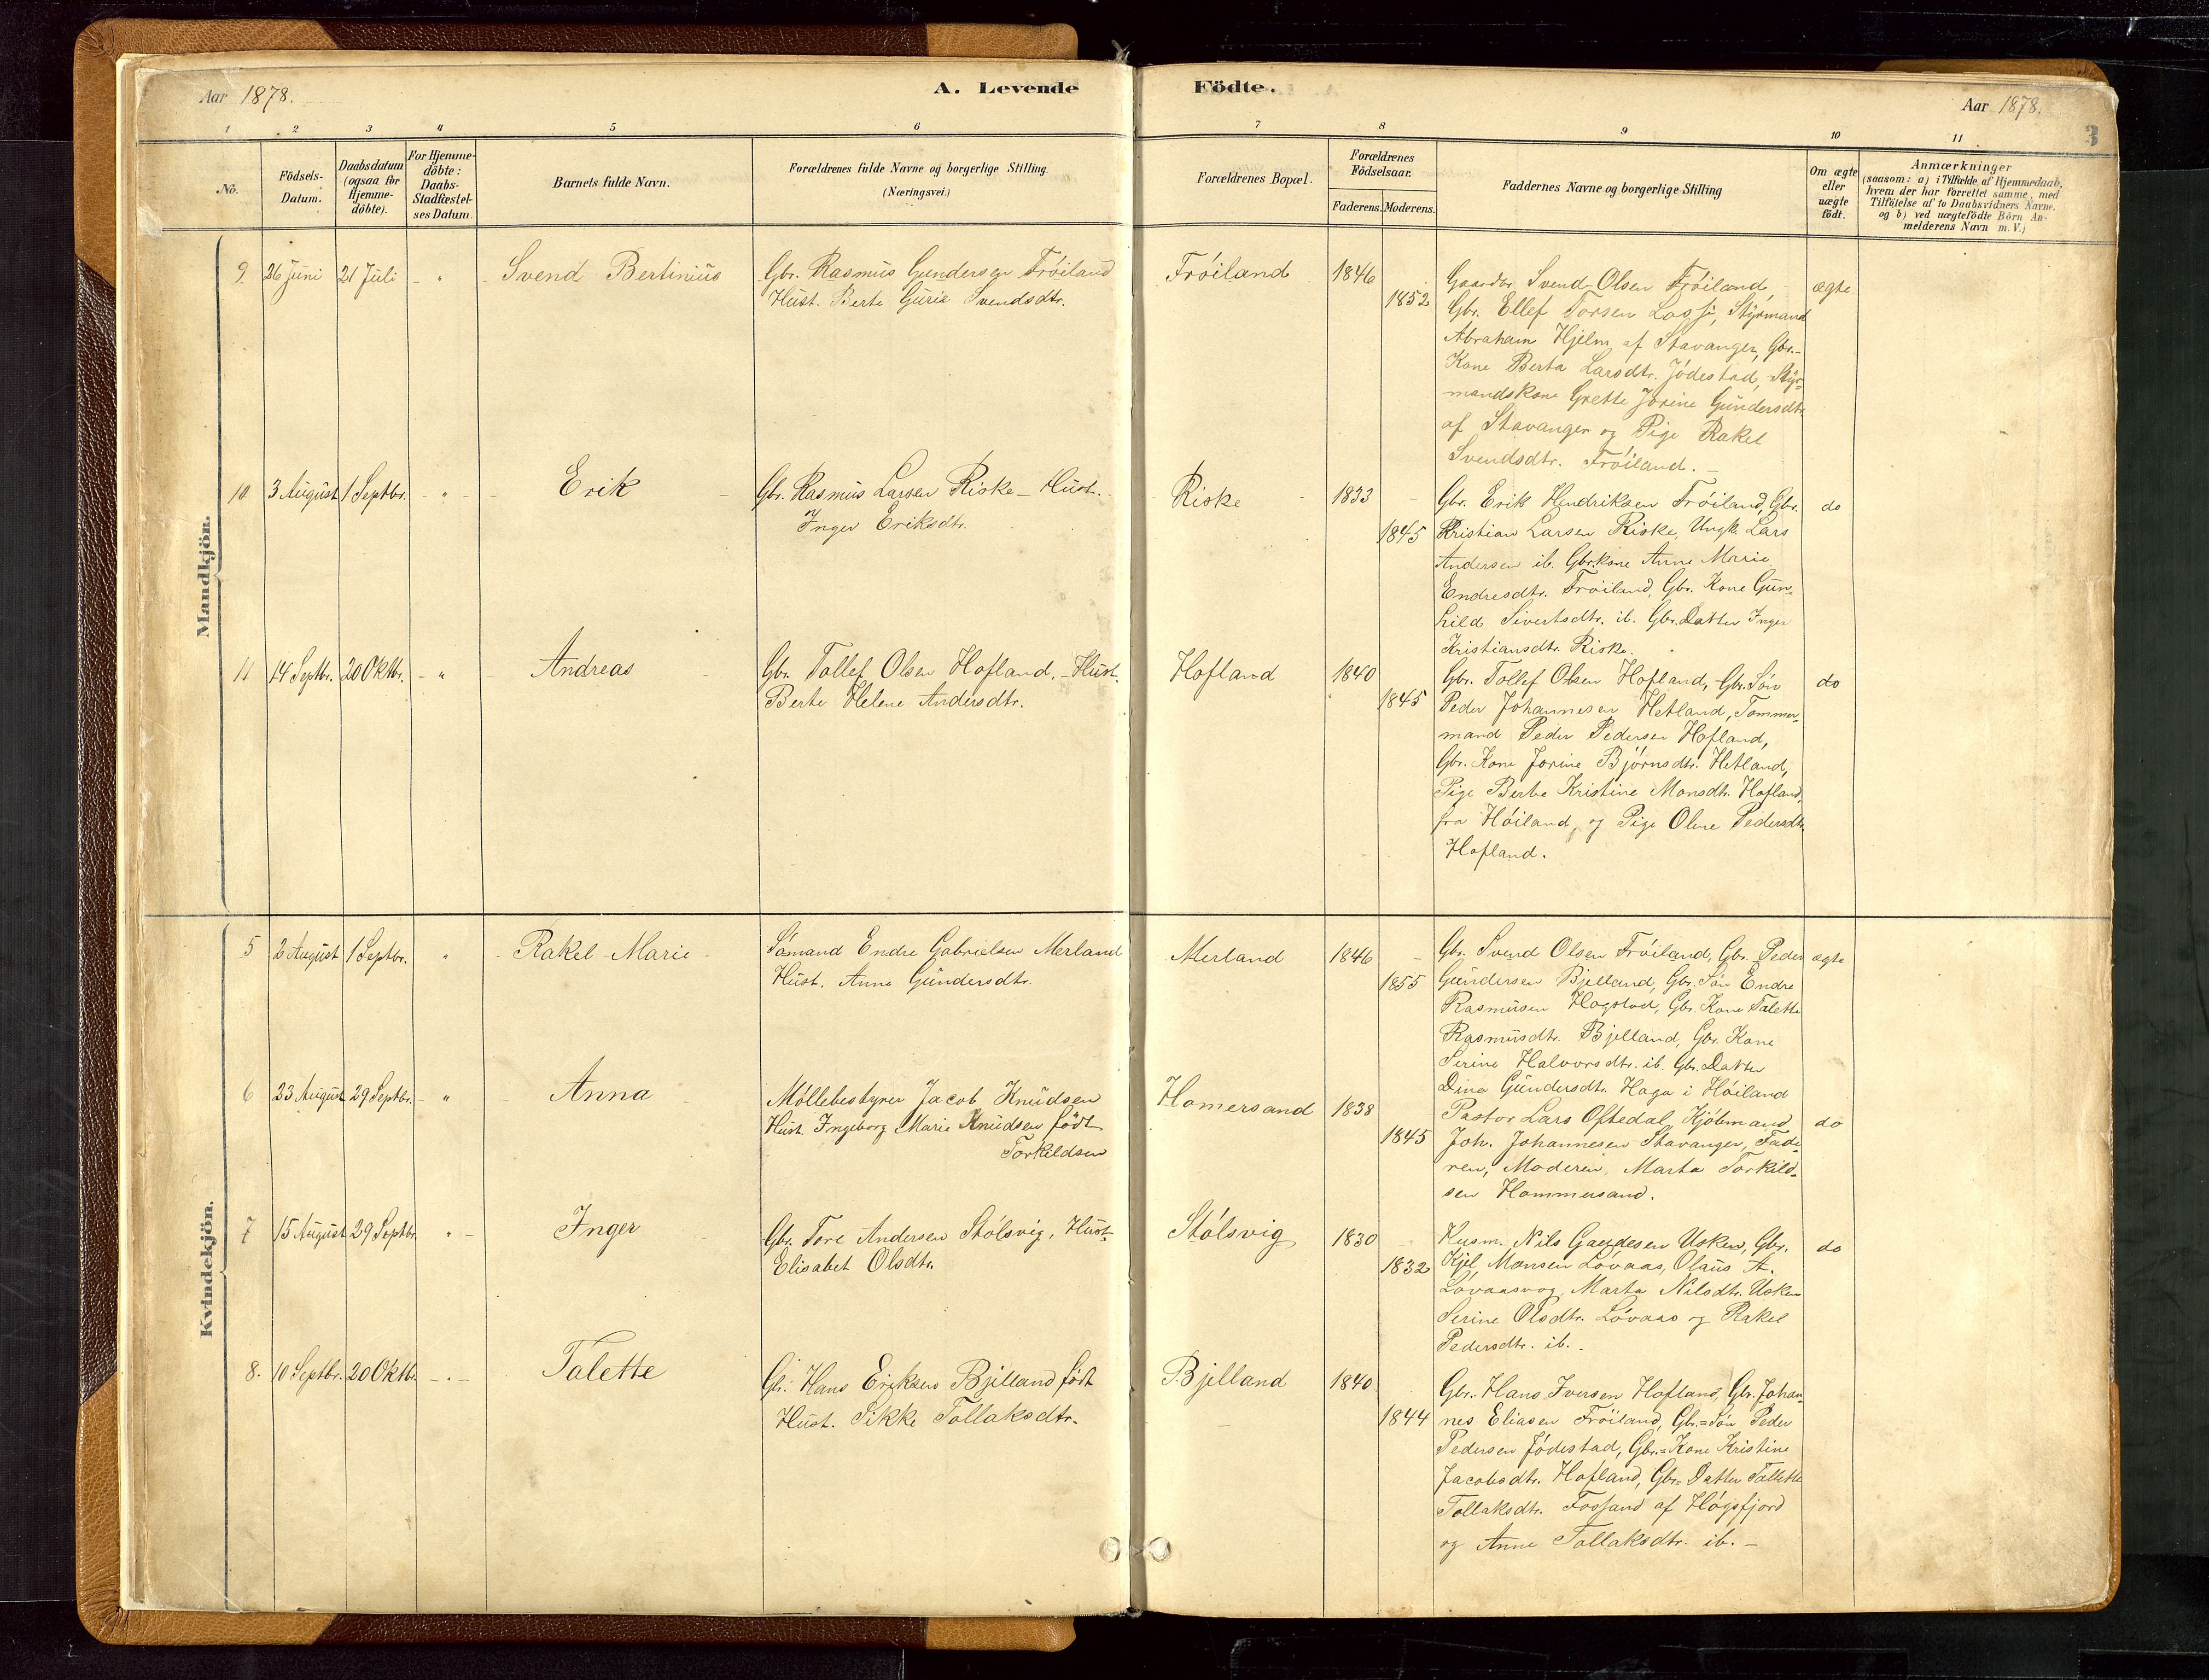 Aar 1878.
A. Levende
Födte.
Aar 1878.
3
1
2
3
4
5
6
7
8
9
10
11
No.
Födsels-
Datum.
Daabsdatum
(ogsaa for
Hjemme-
döbte).
For Hjemme-
döbte:
Daabs-
Stadfæstel-
ses Datum.
Barnets fulde Navn.
Forældrenes fulde Navne og borgerlige Stilling
(Næringsvei.)
Forældrenes Bopæl.
Forældrenes
Födselsaar.
Faderens.
Moderens.
Faddernes Navne og borgerlige Stilling
Om ægte
eller
uægte
födt.
Anmærkninger
(saasom: a) i Tilfælde af Hjemmedaab,
hvem der har forrettet samme, med
Tilföielse af to Daabsvidners Navne.
og b) ved uægtefödte Börn An-
melderens Navn m. V.)
Mandkjön.
9. 26 Juni 21 Juli - " - Svend Bertinius
Gbr. Rasmus Gundersen Fröiland
Hust. Berte Gurie Svendsdtr.
Fröiland 1846
1852
Gaardbr Svend Olsen Fröiland,
Gbr. Ellef Torsen Lassi, Styrmand
Abraham Hjelm af Stavanger, Gbr.-
Kone Berta Larsdtr. Jödestad, Styr-
mandskone Grette Jorine Gundersdtr
af Stavanger og Pige Rakel
Svendsdtr. Fröiland. -
ægte
10 3 August 1 Septbr. - " - Erik
Gbr. Rasmus Larsen Riske - Hust.
Inger Eriksdtr.
Riske 1833
1845
Gbr. Erik Hendriksen Fröiland, Gbr.
Kristian Larsen Riske, Ungk. Lars
Andersen ib. Gbrkone Anne Marie
Endresdtr. Fröiland, Gbr. Kone Gun-
hild Sivertsdtr. ib. Gbr. Datter Inger
Kristiansdtr. Riske.
do
11 14 Septbr. 20 Oktbr. - " - Andreas
Gbr. Tollef Olsen Hofland, - Hust.
Berte Helene Andersdtr.
Hofland 1840
1845
Gbr. Tollef Olsen Hofland, Gbr. Sön
Peder Johannesen Hetland, Tömmer-
mand Peder Pedersen Hofland,
Gbr. Kone Jorine Björnsdtr. Hetland,
Pige Berte Kristine Monsdtr. Hofland,
fra Höiland, og Pige Olene Pedersdtr.
Hofland.
do
Kvindekjön.
5 2 August 1 Septbr. " - Rakel Marie -
Sömand Endre Gabrielsen Merland
Hust. Anna Gundersdtr.
Merland 1846
1855
Gbr. Svend Olsen Fröiland, Gbr. Peder
Gundersen Bjelland, Gbr. Sön Endre
Rasmusen Hogstad, Gbr. Kone Talette
Rasmusdtr. Bjelland, Gbr. Kone
Serine Halvorsdtr. ib. Gbr. Datter
Dina Gundersdtr. Haga i Höiland
ægte
6 23 August 29 Septbr. - " - Anna
Möllebestyrer Jacob Knudsen
Hust. Ingeborg Marie Knudsen födt
Torkildsen
Homersand 1838
1845
Pastor Lars Oftedal, Kjöbmand
Joh. Johannesen Stavanger, Fade-
ren, Moderen, Marta Torkild-
sen Hommersand.
do
7 15 August 29 Septbr. " - Inger
Gbr. Tore Andersen Stölsvig, Hust.
Elisabet Olsdtr.
Stölsvig 1830
1832
Husm. Nils Gaudesen Usken, Gbr.
Kjel Monsen Lövaas, Olaus A.
Lövaasvog, Marta Nilsdtr. Usken
Serine Olsdtr. Lövaas og Rakel
Pedersdtr. ib.
do
8. 10 Septbr. 20 Oktbr. - " - Talette
Gbr. Hans Eriksen Bjelland födt
Hust. Sikke Tollaksdtr.
Bjelland 1840
1844
Gbr. Hans Iversen Hofland, Gbr. Johan-
nes Eliasen Fröiland, Gbr.=Sön Peder
Pedersen Jödestad, Gbr.=Kone Kristine
Jacobsdtr. Hofland, Gbr.= Datter Tallette
Tollaksdtr. Fossand af Högsfjord
og Anne Tollaksdtr. ib. -